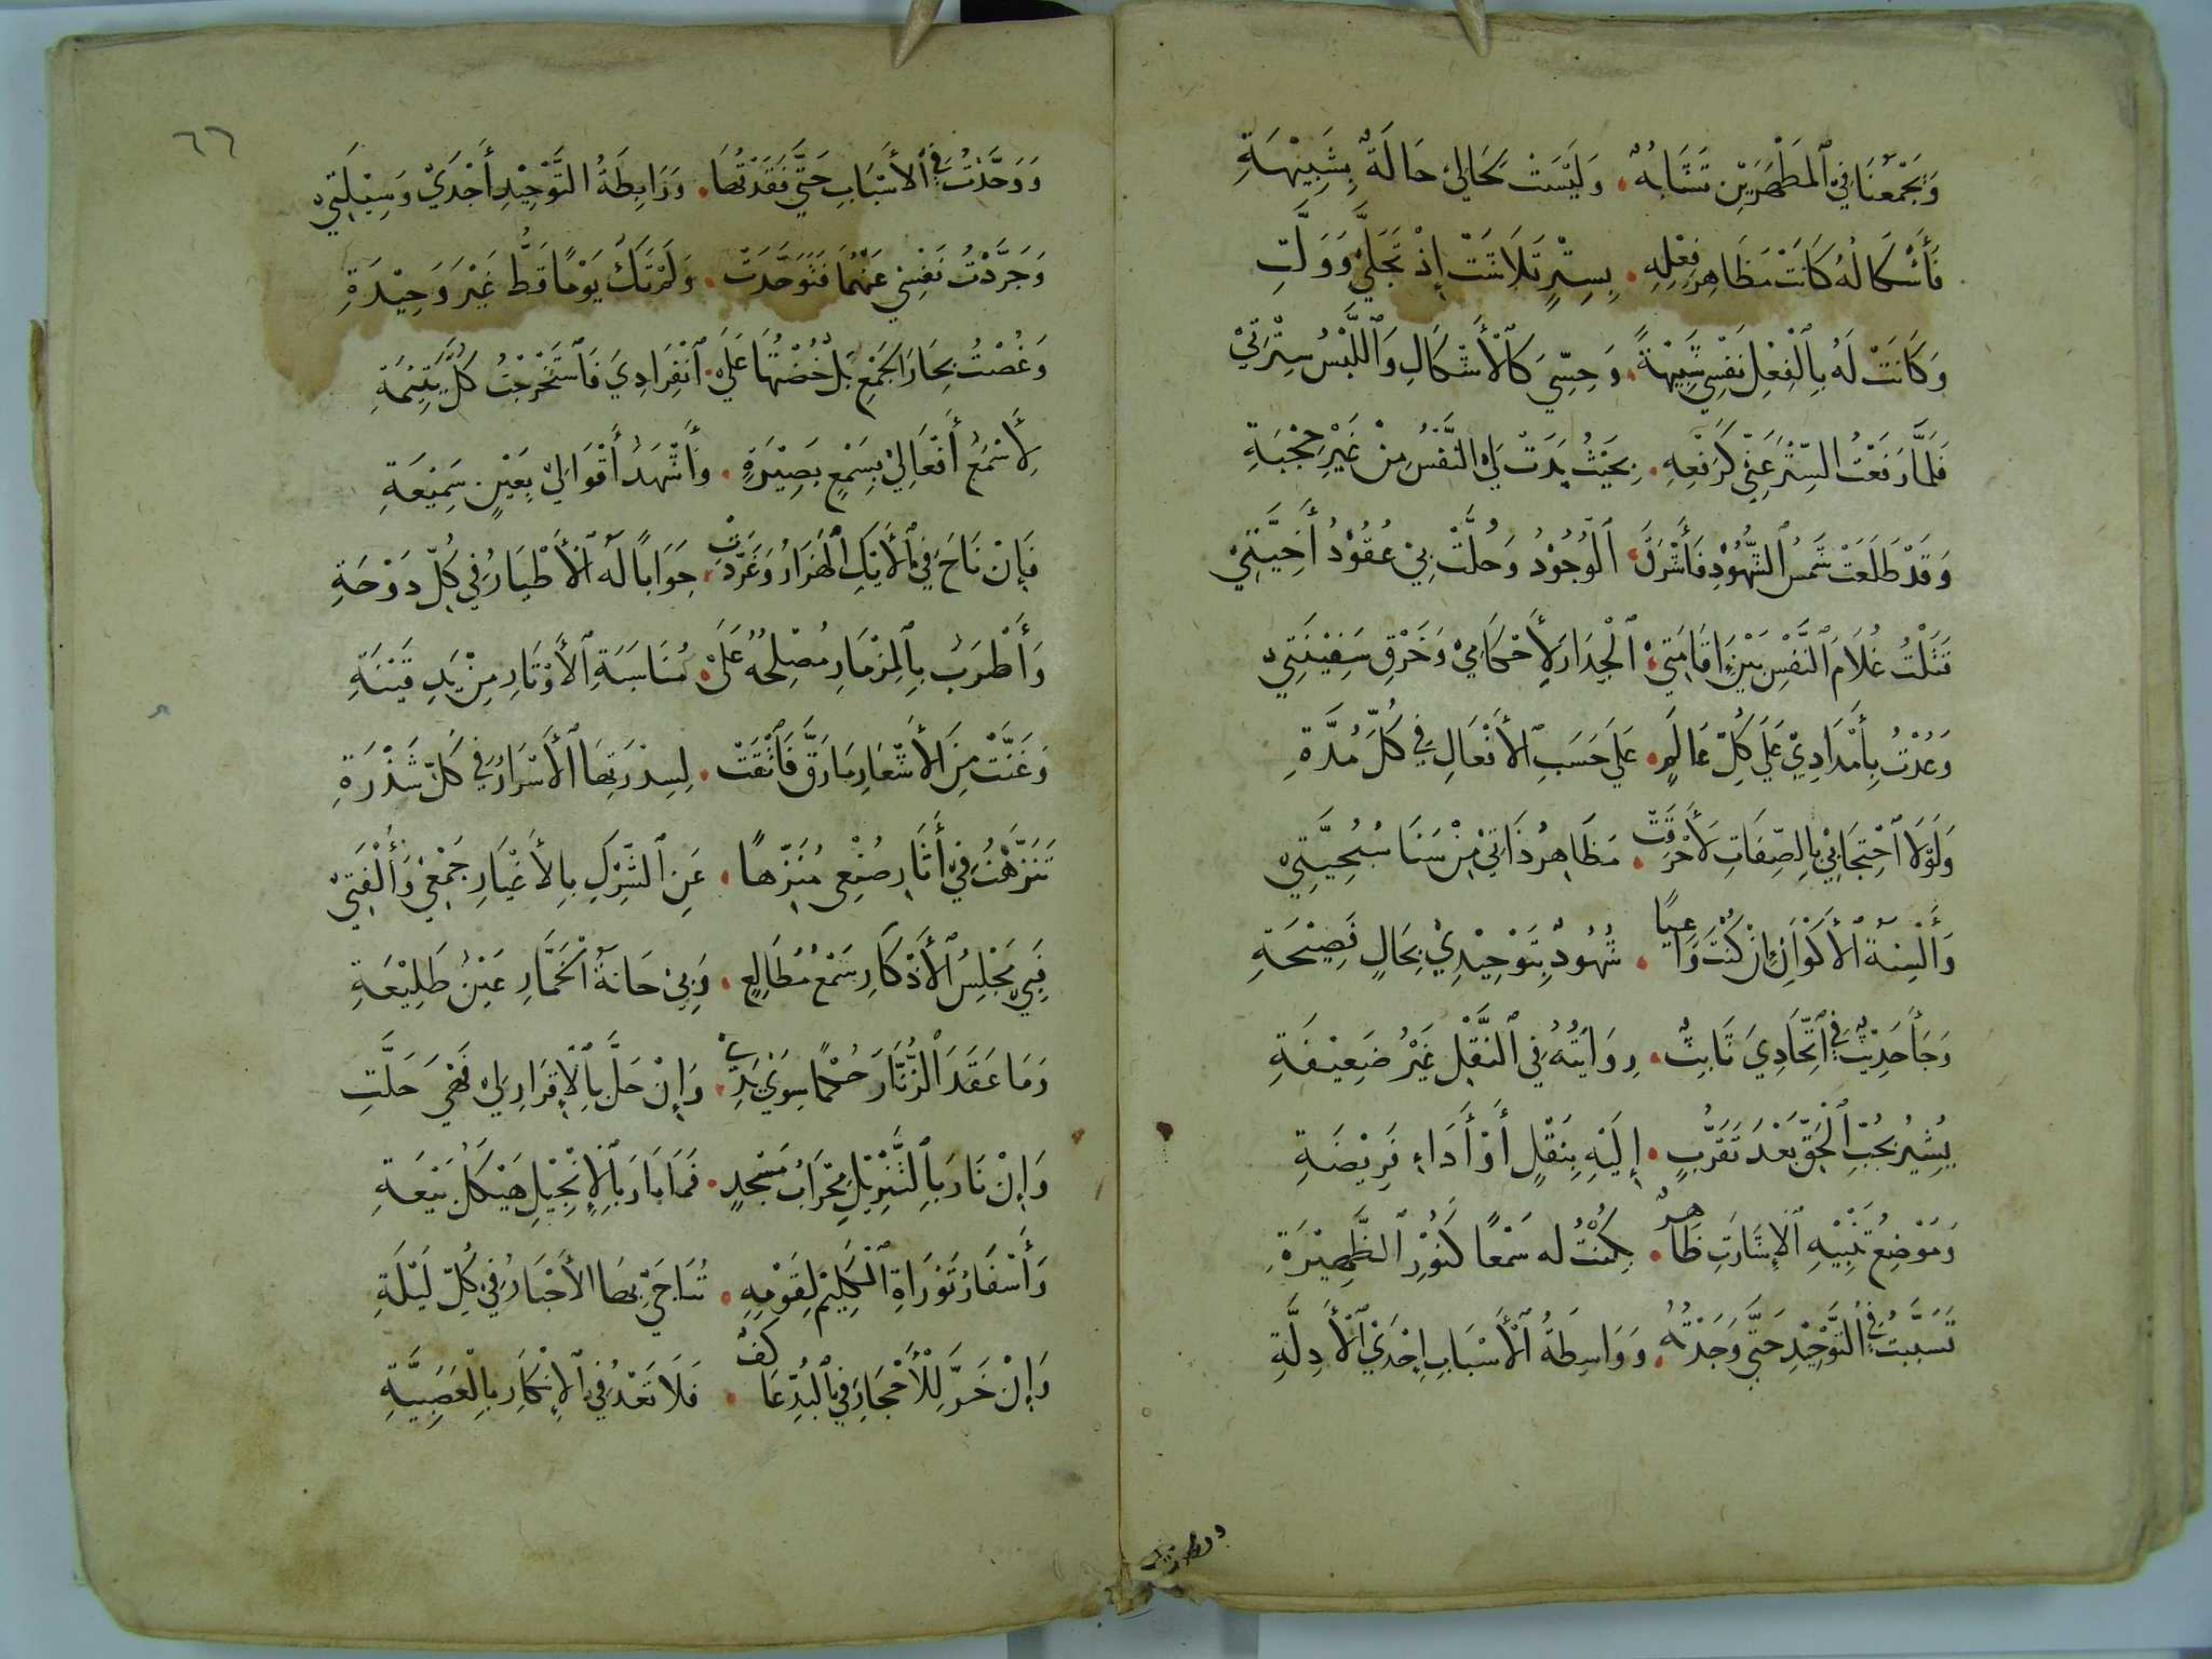 وَيَجْمَعُنَا فِي ٱلمَظْهَرَيْنِ تَشَابُهٌ . وَلَيْسَتْ كَحَالِي حَالَةٌ بِشَبِيْهَةِ
فَأَشْكَالُهُ كَانَتْ مَظَاهِرَ فِعْلِهِ . بِسِتْرٍ تَلَاشَتْ إِذْ تَجَلَّى وَوَلَّتِ
وَكَانَتْ لَهُ بِالْفِعْلِ نَفْسِي شَبِيْهَةً . وَحِسِّيَ كَالْأَشْكَالِ وَاللَّبْسُ سِتْرَتِيْ
فَلَمَّا رَفَعْتُ السِّتْرَ عَنِّي كَرَفْعِهِ . بِحَيْثُ بَدَتْ لِيَ النَّفْسُ مِنْ غَيْرِ حُجْبَةِ
وَقَدْ طَلَعَتْ شَمْسُ الشُّهُوْدِ فَأَشْرَقَ ٱلْوُجُوْدُ وَحُلَّتْ بِيْ عُقُوْدُ أَخِيَّتِيْ
قَتَلْتُ غُلَامَ ٱلنَّفْسِ بَيْنَ إِقَامَتِيْ ٱلْجِدَارَ لِأَحْكَامِيْ وَخَرْقِ سَفِيْنَتِي
وَعُدْتُ بِأَمْدَادِيْ عَلَى كُلِّ عَالَمٍ . عَلَى حَسَبِ ٱلأَفْعَالِ فِي كُلِّ مُدَّةِ
وَلَوْلَا ٱحْتِجَابِيْ بِالصِّفَاتِ لَأُحْرِقَتْ . مَظَاهِرُ ذَاتِيْ مِنْ سَنَا سُبُحِيَّتِيْ
وَأَلْسِنَةُ ٱلأَكْوَانِ إِنْ كُنْتَ وَاعِيًا . شُهُوْدٌ بِتَوْحِيْدِيْ بِحَالٍ فَصِيْحَةِ
وَجَأَ حَدِيْثٌ فِي ٱتِّحَادِيَ ثَابِتٌ . رِوَايَتُهُ فِي النَّقْلِ غَيْرُ ضَعِيْفَةِ
يُشِيْرُ بِحُبِّ ٱلْحَقِّ بَعْدَ تَقَرُّبٍ . إِلَيْهِ بِنَفْلٍ أَوْ أَدَاءِ فَرِيْضَةِ
وَمَوْضِعُ تَنْبِيْهِ ٱلإِشَارَتِ ظَاهِرٌ . بِكُنْتُ له سَمْعًا كَنُوْرِ ٱلظَّهِيْرَةِ
تَسَبَّبْتُ فِي ٱلتَّوْحِيْدِ حَتَّى وَجَدْتُهُ . وَوَاسِطَةُ ٱلْأَسْبَابِ إِحْدَى ٱلْأَدِلَّةِ
٦٦
وَوَحَّدْتُ فِي ٱلأَسْبَابِ حَتَّى فَقَدْتُهَا . وَرَابِطَةُ التَّوْحِيْدِ أَجْدَى وَسِيْلَتِي
وَجَرَّدْتُ نَفْسِيْ عَنْهُمَا فَتَوَحَّدَتْ . وَلَمْ تَكُ يَوْمًا قَطُّ غَيْرَ وَحِيْدَةِ
وَغُصْتُ بِحَارَ الجَمْعِ بَلْ خُضْتُهَا عَلَى . ٱنْفِرَادِيَ فَٱسْتَخْرَجْتُ كُلَّ يَتِيْمَةِ
لِأَسْمَعَ أَفْعَالِيْ بِسَمْعٍ بَصِيْرَةٍ . وَأَشْهَدَ أَقْوَالِيْ بِعَيْنٍ سَمِيْعَةِ
فَإِنْ نَاحَ فِي ٱلأَيْكِ ٱلْهَزَارُ وَغَرَّدَتْ . جَوَابًا لَهُ ٱلْأَطْيَارُ فِي كُلِّ دَوْحَةِ
وَأَطْرَبَ بِالْمِزْمَارِ مُصْلِحُهُ عَلَى . مُنَاسَبَةِ ٱلأَوْتَارِ مِنْ يَدِ قَيْنَةِ
وَغَنَّتْ مِنَ الأَشْعَارِ مَا رَقَّ فَٱرْتَقَتْ . لِسِدْرَتِهَا ٱلأَسْرَارُ فِي كُلِّ شَذْرَةِ
تَنَزَّهْتُ فِيْ أَثَارِ صُنْعِي مُنَزِّهًا . عَنِ ٱلشِّرْكِ بِالأَغْيَارِ جَمْعِيْ وَأُلْفَتِيْ
فَبِي مَجْلِسُ ٱلأَذْكَارِ سَمْعُ مُطَالِعٍ . وَبِيْ حَانَةُ ٱلْخَمَّارِ عَيْنُ طَلِيْعَةِ
وَمَا عَقَدَ ٱلزُّنَّارَ حُكْمًا سِوَى يَدِيْ . وَإِنْ حَلَّ بِالْإِقْرَارِ لِيْ فَهْيَ حَلَّتِ
وَإِنْ نَارَ بِالتَّنْزِيْلِ مِحْرَابُ مَسْجِدٍ . فَمَا بَارَ بِالْإِنْجِيْلِ هَيْكَلُ بَيْعَةِ
وَأَسْفَارُ تَوْرَاةِ ٱلْكَلِيْمِ لِقَوْمِهِ . تُنَاجَى بِهَا الأَحْبَارُ فِي كُلِّ لَيْلَةِ
وَإِنْ خَرَّ لِلْأَحْجَارِ فِي ٱلْبُدِّ عَاكِفٌ . فَلَا تَعْدُ فِي ٱلإِنْكَارِ بِالْعَصَبِيَّةِ